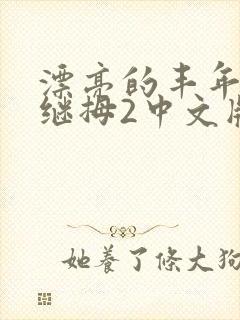 漂亮的丰年
继拇2中文版
她養了條大狗